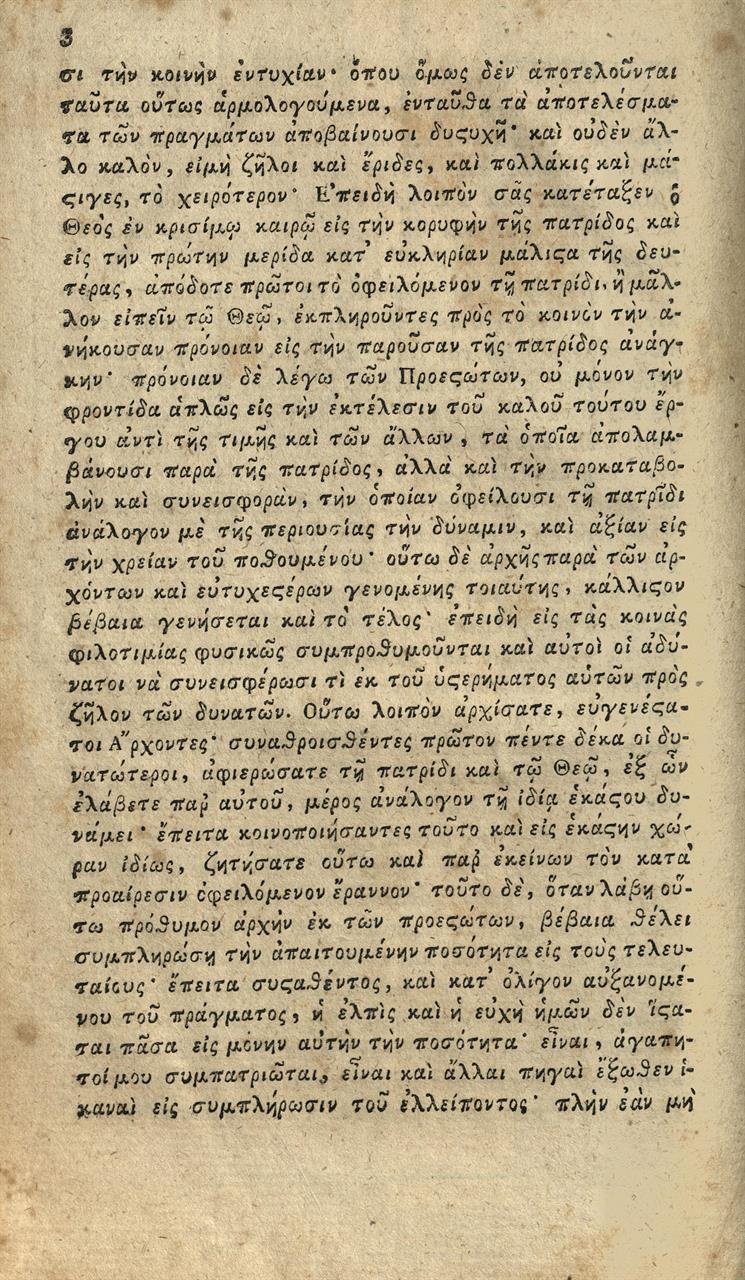 3
σι τὴν κοινὴν ἐντυχίαν· ὅπου ὅμως δὲν ἀποτελοῦνται
ταῦτα οὕτως ἁρμολογούμενα, ἐνταῦθα τὰ ἀποτελέσμα-
τα τῶν πραγμάτων ἀποβαίνουσι δυςυχῆ· καὶ οὐδὲν ἄλ-
λο καλὸν, εἰμὴ ζῆλοι καὶ ἔριδες, καὶ πολλάκις καὶ μά-
ςιγες, τὸ χειρότερον· Ἐπειδὴ λοιπὸν σᾶς κατέταξεν ὁ
Θεὸς ἐν κρισίμῳ καιρῷ εἰς τὴν κορυφὴν τῆς πατρίδος καὶ
εἰς τὴν πρώτην μερίδα κατ' εὐκληρίαν μάλιςα τῆς δευ-
τέρας, ἀπόδοτε πρῶτοι τὸ ὀφειλόμενον τῇ πατρίδι, ἢ μᾶλ-
λον εἰπεῖν τῷ Θεῷ, ἐκπληροῦντες πρὸς τὸ κοινὸν τὴν ἀ-
νήκουσαν πρόνοιαν εἰς τὴν παροῦσαν τῆς πατρίδος ἀνάγ-
κην· πρόνοιαν δὲ λέγω τῶν Προεςώτων, οὐ μόνον τὴν
φροντίδα ἁπλῶς εἰς τὴν ἐκτέλεσιν τοῦ καλοῦ τούτου ἔρ-
γου ἀντὶ τῆς τιμῆς καὶ τῶν ἄλλων, τὰ ὁποῖα ἀπολαμ-
βάνουσι παρὰ τῆς πατρίδος, ἀλλὰ καὶ τὴν προκαταβο-
λὴν καὶ συνεισφορὰν, τὴν ὁποίαν ὀφείλουσι τῇ πατρῖδι
ἀνάλογον μὲ τῆς περιουσίας τὴν δύναμιν, καὶ ἀξίαν εἰς
τὴν χρείαν τοῦ ποθουμένου· οὕτω δὲ ἀρχῆς παρὰ τῶν ἀρ-
χόντων καὶ εὐτυχεςέρων γενομένης τοιαύτης, κάλλιςον
βέβαια γενήσεται καὶ τὸ τέλος· ἐπειδὴ εἰς τὰς κοινὰς
φιλοτιμίας φυσικῶς συμπροθυμοῦνται καὶ αὐτοὶ οἱ ἀδύ-
νατοι νὰ συνεισφέρωσι τὶ ἐκ τοῦ ὑςερήματος αὑτῶν πρὸς
ζῆλον τῶν δυνατῶν. Οὕτω λοιπὸν ἀρχίσατε, εὐγενέςα-
τοι Ἄρχοντες· συναθροισθέντες πρῶτον πέντε δέκα οἱ δυ-
νατώτεροι, ἀφιερώσατε τῇ πατρίδι καὶ τῷ Θεῷ, ἐξ ὧν
ἐλάβετε παρ' αὐτοῦ, μέρος ἀνάλογον τῇ ἰδίᾳ ἑκάςου δυ-
νάμει· ἔπειτα κοινοποιήσαντες τοῦτο καὶ εἰς ἑκάςην χώ-
ραν ἰδίως, ζητήσατε οὕτω καὶ παρ' ἐκείνων τὸν κατὰ
προαίρεσιν ὀφειλόμενον ἔραννον· τοῦτο δὲ, ὅταν λάβῃ οὕ-
τω πρόθυμον ἀρχὴν ἐκ τῶν προεςώτων, βέβαια θέλει
συμπληρώσῃ τὴν ἀπαιτουμένην ποσότητα εἰς τοὺς τελευ-
ταίους· ἔπειτα συςαθέντος, καὶ κατ' ὀλίγον αὐξανομέ-
νου τοῦ πράγματος, ἡ ἐλπὶς καὶ ἡ εὐχὴ ἡμῶν δὲν ἵςα-
ται πᾶσα εἰς μόνην αὐτὴν τὴν ποσότητα· εἶναι, ἀγαπη-
τοί μου συμπατριῶται, εἶναι καὶ ἄλλαι πηγαὶ ἔξωθεν ἱ-
καναὶ εἰς συμπλήρωσιν τοῦ ἐλλείποντος· πλὴν ἐὰν μὴ